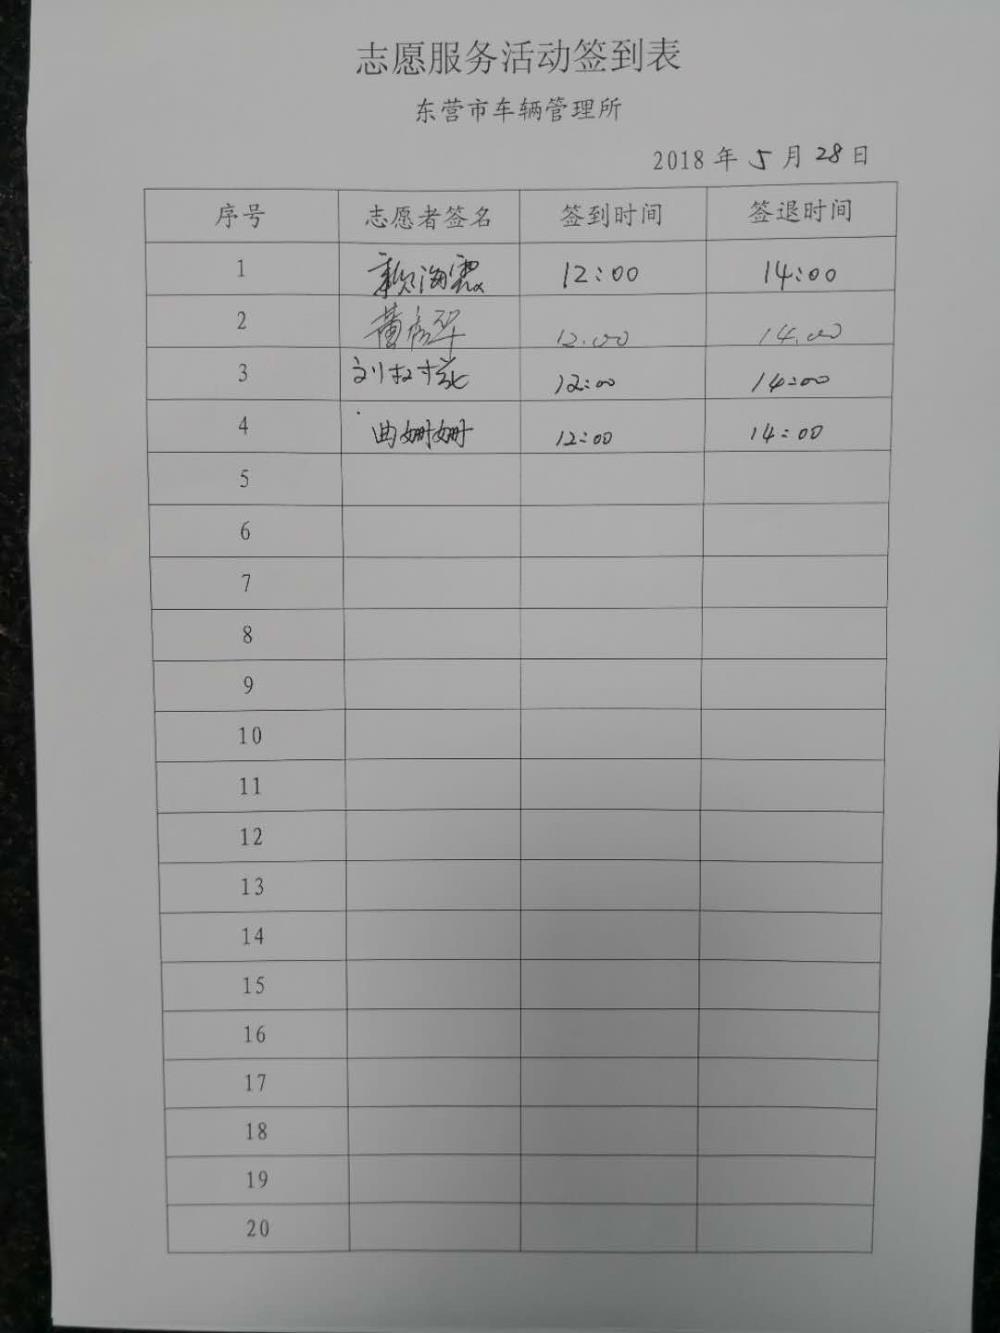 志愿服务活动签到表
东营市车辆管理所
2018 年 5 月 28 日
序号 志愿者签名 签到时间 签退时间
1 海霞 12:00 14:00
2 黄 华 12.00 14.00
3 刘 12:00 14:00
4 曲姗姗 12:00 14:00
5
6
7
8
9
10
11
12
13
14
15
16
17
18
19
20